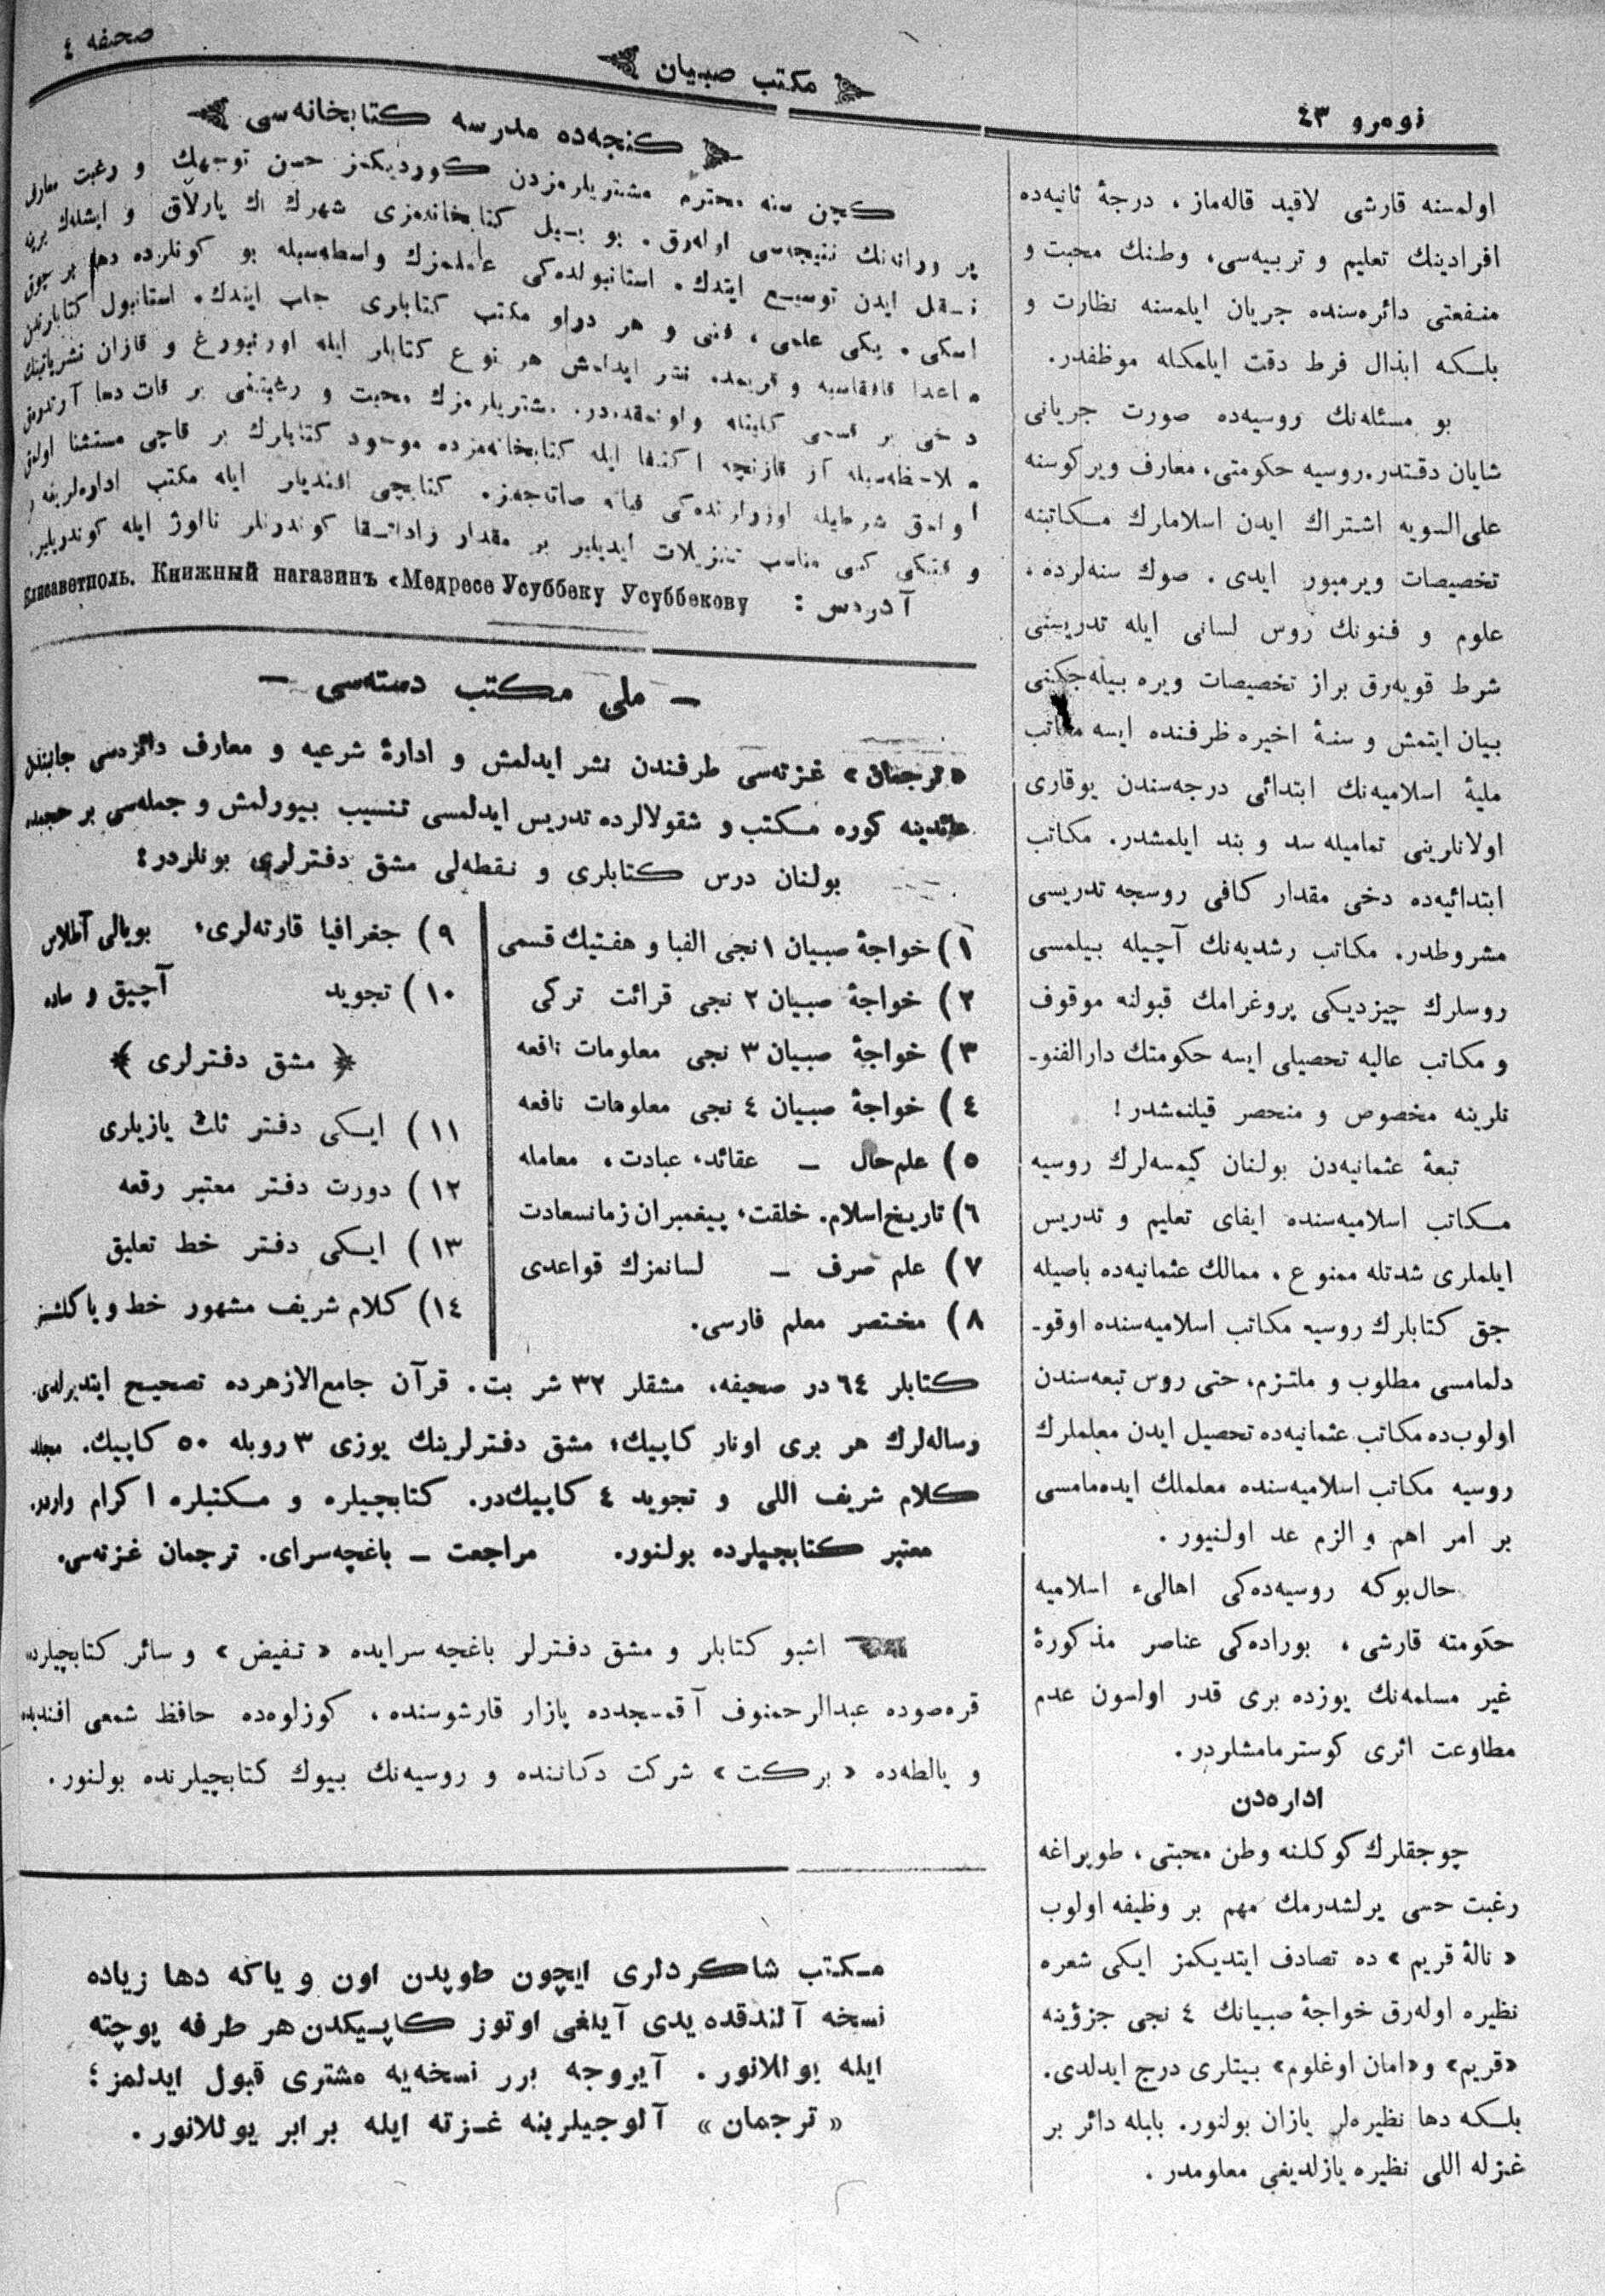 نومرو ٤٣
مكتب صبيان
صحيفه ٤
اولمسنه قارشی لاقيد قاله‌ماز، درجهٔ ثانيه‌ده
افرادينك تعليم و تربيه‌سی، وطنك محبت و
منفعتی دائره‌سنده جريان ايلمسنه نظارت و
بلكه ابذال فرط دقت ايلمكله موظفدر.
بو مسئله‌نك روسيه‌ده صورت جريانی
شايان دقتدر. روسيه حكومتی، معارف ويركوسنه
علی‌السويه اشتراك ايدن اسلاملرك مكاتبنه
تخصيصات ويرميور ايدی. صوك سنه‌لرده،
علوم و فنونك روس لسانی ايله تدريسنی
شرط قويه‌رق براز تخصيصات ويره بيله‌جكنی
بيان ايتمش و سنهٔ اخيره ظرفنده ايسه مكاتب
مليهٔ اسلاميه‌نك ابتدائی درجه‌سندن يوقاری
اولانلرينی تماميله سد و بند ايلمشدر. مكاتب
ابتدائيه‌ده دخی مقدار كافی روسجه تدريسی
مشروطدر. مكاتب رشديه‌نك آچيله بيلمسی
روسلرك چيزديكی پروغرامك قبولنه موقوف
و مكاتب عاليه تحصيلی ايسه حكومتك دارالفنو-
نلرينه مخصوص و منحصر قيلنمشدر!
تبعهٔ عثمانيه‌دن بولنان كيمسه‌لرك روسيه
مكاتب اسلاميه‌سنده ايفای تعليم و تدريس
ايلملری شدتله ممنوع، ممالك عثمانيه‌ده باصيله
جق كتابلرك روسيه مكاتب اسلاميه‌سنده اوقو-
دلمامسی مطلوب و ملتزم، حتی روس تبعه‌سندن
اولوب‌ده مكاتب عثمانيه‌ده تحصيل ايدن معلملرك
روسيه مكاتب اسلاميه‌سنده معلملك ايده‌مامسی
بر امر اهم و الزم عد اولنيور.
حال‌بوكه روسيه‌ده‌كی اهالیء اسلاميه
حكومته قارشی، بوراده‌كی عناصر مذكورهٔ
غير مسلمه‌نك يوزده بری قدر اولسون عدم
مطاوعت اثری كوسترمامشلردر.
اداره‌دن
چوجقلرك كوكلنه وطن محبتی، طوپراغه
رغبت حسی يرلشدرمك مهم بر وظيفه اولوب
«نالهٔ قريم» ده تصادف ايتديكمز ايكی شعره
نظيره اوله‌رق خواجهٔ صبيانك ٤ نجی جزؤينه
«قريم» و «امان اوغلوم» بيتلری درج ايدلدی.
بلكه دها نظيره‌لر يازان بولنور. بابله دائر بر
غزله اللی نظيره يازلديغی معلومدر.
كنجه‌ده مدرسه كتابخانه‌سی
كچن سنه محترم مشتريلرمزدن كورديكمز حسن توجهك و رغبت معارف
پر ورانه‌نك نتيجه‌سی اوله‌رق، بو ييل كتابخانه‌مزی شهرك اك پارلاق و ايشلك برينه
نقل ايدن توسيع ايتدك. استانبولده‌كی عامله‌مزك واسطه‌سيله بو كونلرده دها بر چوق
اسكی، يكی علمی، فنی و هر درلو مكتب كتابلری جلب ايتدك. استانبول كتابلرندن
ماعدا قافقاسيه و قريمده نشر ايدلمش هر نوع كتابلر ايله اورنبورغ و قازان نشرياتينك
دخی بر قسمی كليتله و اولمقده‌در. مشتريلرمزك محبت و رغبتنی بر قات دها آرتدرمق
ملاحظه‌سيله آز قازنجه اكتفا ايله كتابخانه‌مزده موجود كتابلرك بر قاچی مستثنا اولق
اولمق شرطيله اوزرلرنده‌كی فيأته صاته‌جغز. كتابچی افنديلر ايله مكتب اداره‌لرينه
و مناسب تنزيلات ايديلير بر مقدار زاداتقا كوندرنلر نالوژ ايله كوندريلير.
آدرس: Елисаветполь. Книжный магазинъ «Медресе Усуббеку Усуббекову
— ملی مكتب دسته‌سی —
«ترجمان» غزته‌سی طرفندن نشر ايدلمش و ادارهٔ شرعيه و معارف دائره‌سی جانبندن
عائدينه كوره مكتب و شقولالرده تدريس ايدلمسی تنسيب بيورلمش و جمله‌سی بر حجمده
بولنان درس كتابلری و نقطه‌لی مشق دفترلری بونلردر:
١) خواجهٔ صبيان ١ نجی الفبا و هفتيك قسمی
٢) خواجهٔ صبيان ٢ نجی قرائت تركی
٣) خواجهٔ صبيان ٣ نجی معلومات نافعه
٤) خواجهٔ صبيان ٤ نجی معلومات نافعه
٥) علم‌حال — عقائد، عبادت، معامله
٦) تاريخ‌اسلام. خلقت، پيغمبران زمانسعادت
٧) علم صرف — لسانمزك قواعدی
٨) مختصر معلم فارسی.
٩) جغرافيا قارته‌لری، بويالی آطلاس
١٠) تجويد آچيق و ساده
﴿ مشق دفترلری ﴾
١١) ايكی دفتر ثلث يازيلری
١٢) دورت دفتر معتبر رقعه
١٣) ايكی دفتر خط تعليق
١٤) كلام شريف مشهور خط و ياكلشسز
كتابلر ٦٤ در صحيفه، مشقلر ٣٢ شر بت. قرآن جامع‌الازهرده تصحيح ايتديرلدی.
رساله‌لرك هر بری اونار كاپيك، مشق دفترلرينك يوزی ٣ روبله ٥٠ كاپيك. مجلد
كلام شريف اللی و تجويد ٤ كاپيك‌در. كتابچيلره و مكتبلره اكرام واردر.
معتبر كتابجيلرده بولنور. مراجعت — باغچه‌سرای. ترجمان غزته‌سی.
اشبو كتابلر و مشق دفترلر باغچه سرايده «تفيض» و سائر كتابچيلرده
قره‌صوده عبدالرحمنوف آقمسجدده پازار قارشوسنده، كوزلوه‌ده حافظ شمعی افنديده
و يالطه‌ده «بركت» شركت دكاننده و روسيه‌نك بيوك كتابچيلرنده بولنور.
مكتب شاكردلری ايچون طوپدن اون و ياكه دها زياده
نسخه آلندقده يدی آيلغی اوتوز كاپيكدن هر طرفه پوچته
ايله يوللانور. آيروجه برر نسخه‌يه مشتری قبول ايدلمز؛
«ترجمان» آلوجيلرينه غزته ايله برابر يوللانور.